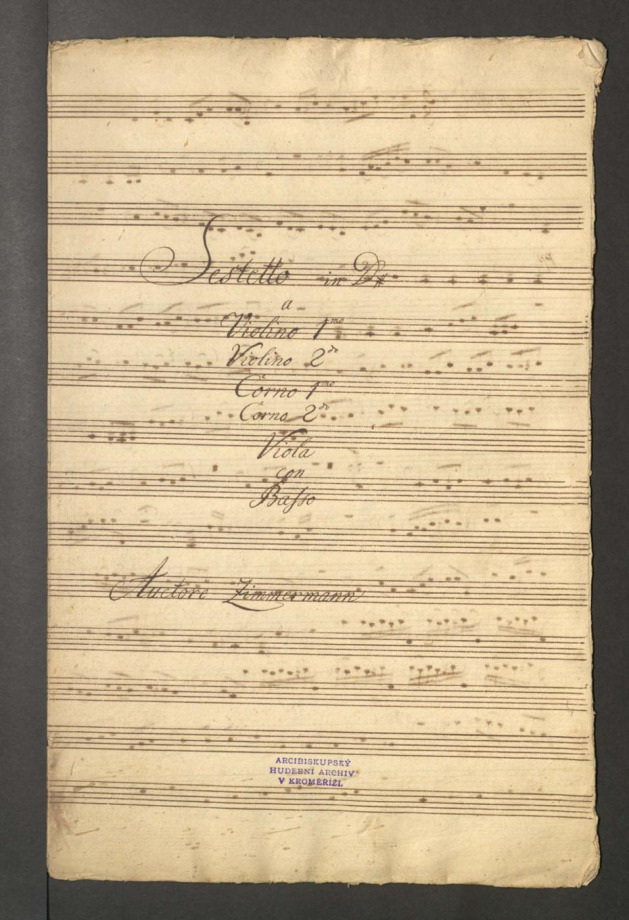 Sestetto in D#
a
Violino 1mo
Violino 2do
Corno 1mo
Corno 2do
Viola
con
Basso
Auctore Zimmermann
ARCIBISKUPSKÝ
HUDEBNÍ ARCHIV
V KROMĚŘÍŽI.